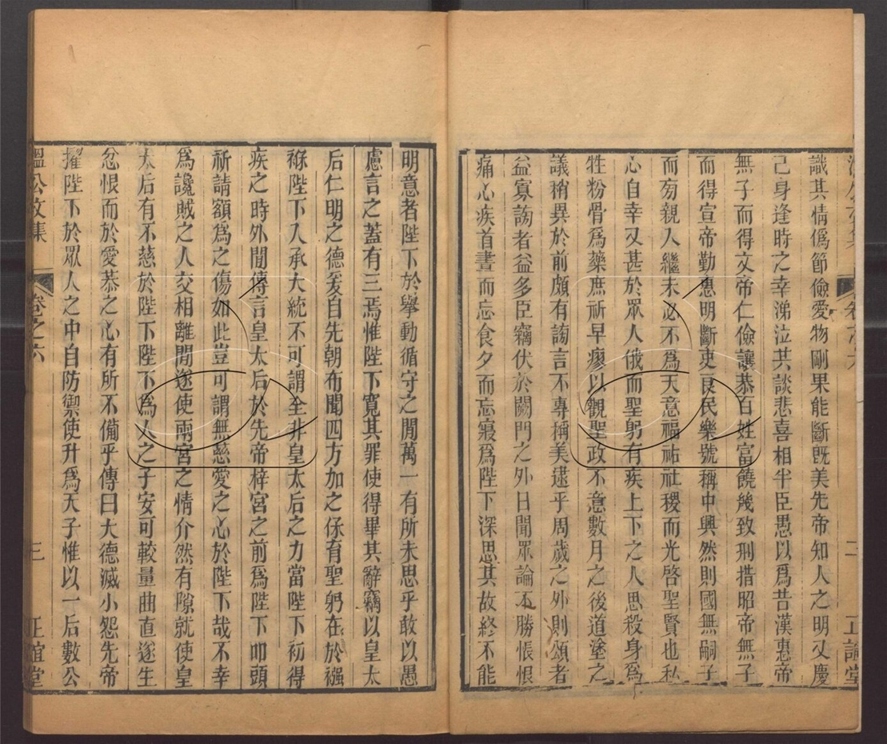 識其情僞節儉愛物剛果能斷旣美先帝知人之明又慶
己身逢時之幸涕泣共談悲喜相半臣愚以爲昔漢惠帝
無子而得文帝仁儉讓恭百姓富饒幾致刑措昭帝無子
而得宣帝勤惠明斷吏良民樂號稱中興然則國無嗣子
而旁親入繼未必不爲天意福祐社稷而光啓聖賢也私
心自幸又甚於眾人俄而聖躬有疾上下之人思殺身爲
牲粉骨爲藥庶祈早瘳以觀聖政不意數月之後道塗之
議稍異於前頗有謗言不專稱美逮乎周歲之外則頌者
益寡謗者益多臣竊伏於闕門之外日聞眾論不勝悵恨
痛心疾首晝而忘食夕而忘寢爲陛下深思其故終不能
二
正誼堂
明意者陛下於舉動循守之閒萬一有所未思乎敢以愚
慮言之蓋有三焉惟陛下寬其罪使得畢其辭竊以皇太
后仁明之德爰自先朝布聞四方加之保育聖躬在於襁
褓陛下入承大統不可謂全非皇太后之力當陛下初得
疾之時外閒傳言皇太后於先帝梓宮之前爲陛下叩頭
祈請額爲之傷如此豈可謂無慈愛之心於陛下哉不幸
爲讒賊之人交相離閒遂使兩宮之情介然有隙就使皇
太后有不慈於陛下陛下爲人之子安可較量曲直遂生
忿恨而於愛恭之心有所不備乎傳曰大德滅小怨先帝
擢陛下於眾人之中自防禦使升爲天子惟以一后數公
溫公文集
卷之六
三
正誼堂